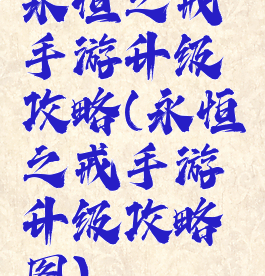 永恒之戒
手游升级
攻略(永恒
之戒手游
升级攻略
图)